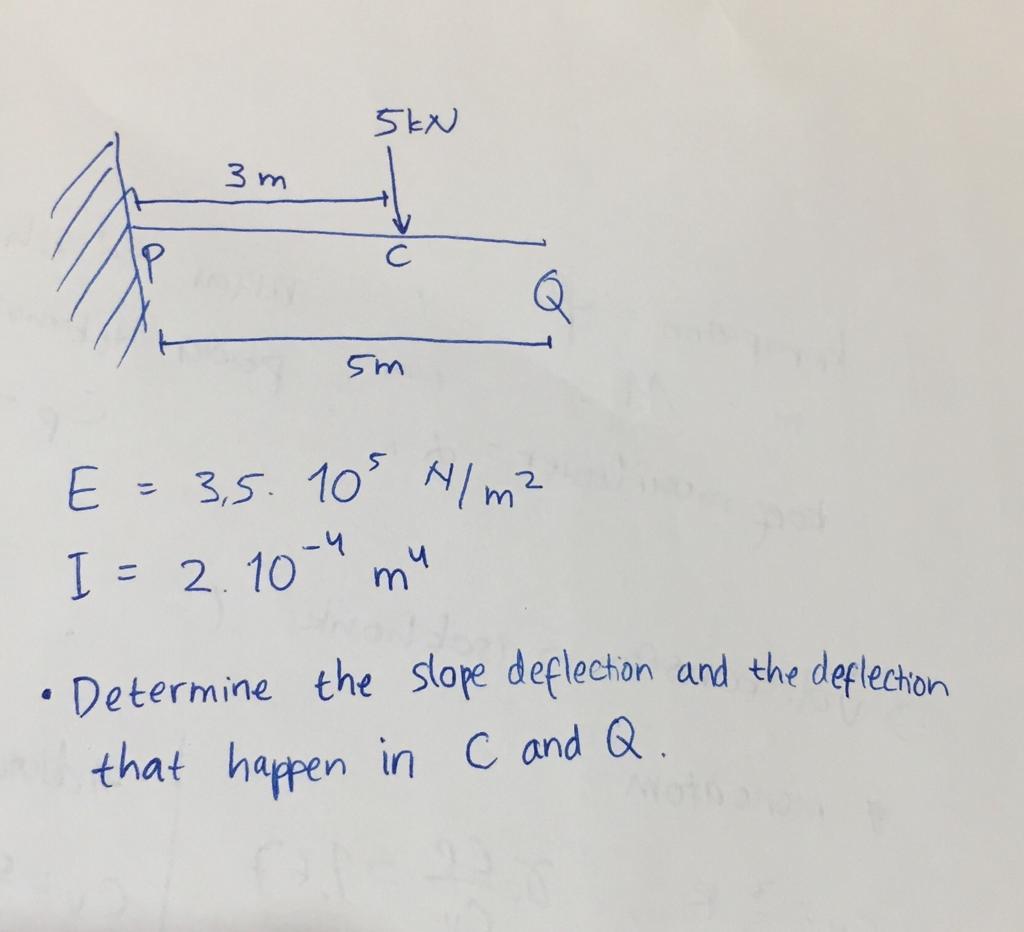 5kN
3 m
P
C
Q
5m
E = 3,5. 10⁵ N/m²
I = 2. 10⁻⁴ m⁴
• Determine the slope deflection and the deflection
that happen in C and Q.